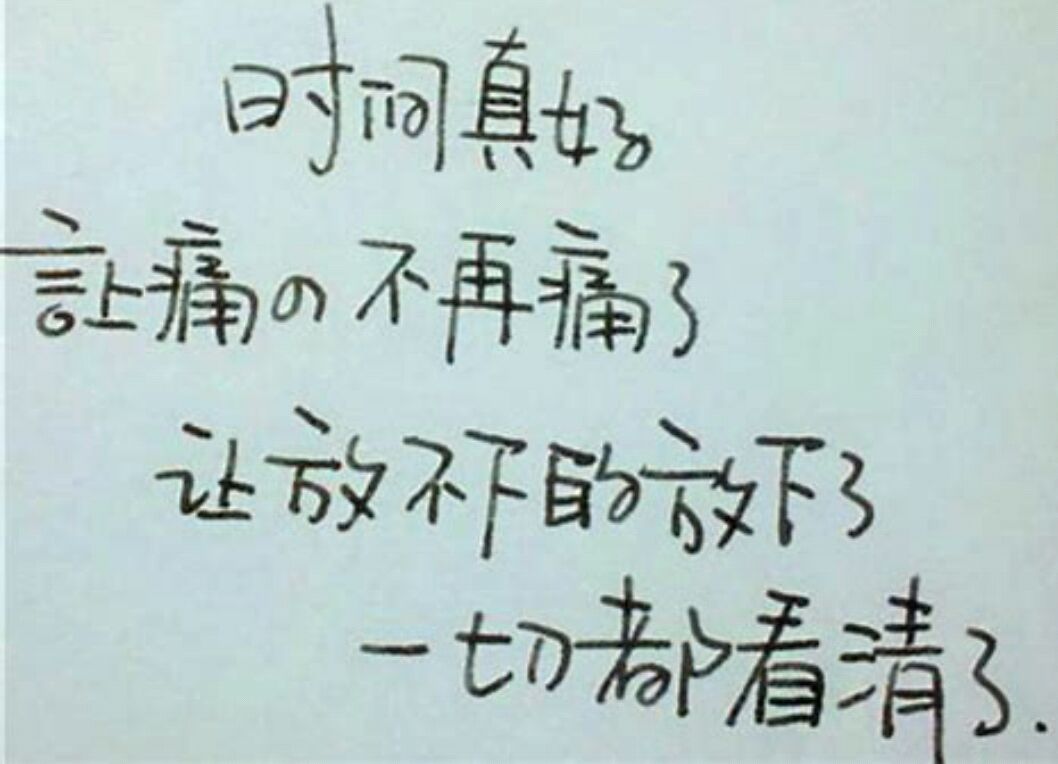 时间真好
訁上痛の不再痛了
让放不下的放下了
一切都看清了.